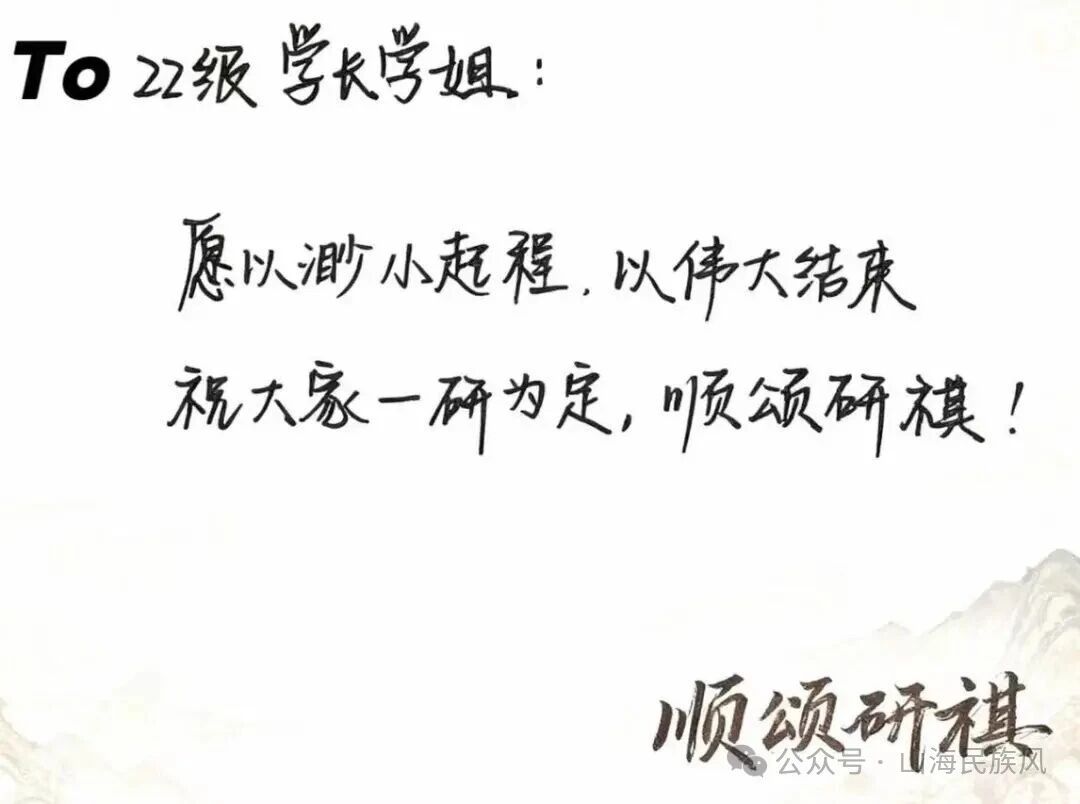 To 22级学长学姐：
愿以渺小起程，以伟大结束
祝大家一研为定，顺颂研祺！
顺颂研祺
公众号·山海民族风